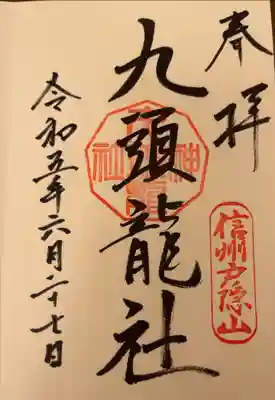 奉拝
信州戸隠山
九頭龍社
令和五年六月二十七日